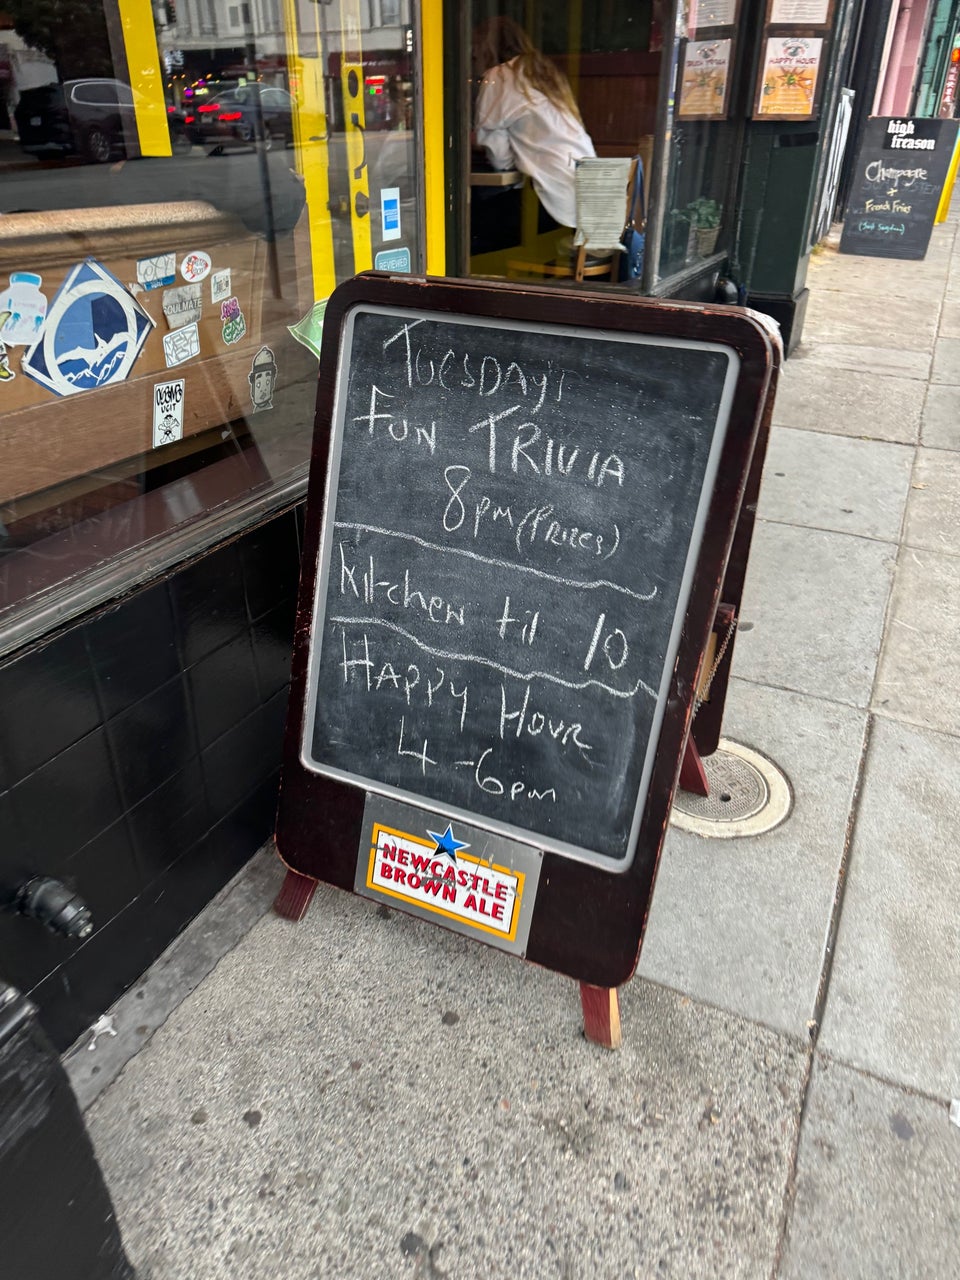 TUESDAY'S
FUN TRIVIA
8pm (PRIZES)
Kitchen til 10
HAPPY HOUR
4-6pm
NEWCASTLE
BROWN ALE
high
treason
Champagne
+
French Fries
HAPPY HOUR!
REVIEWED
SOULMATE